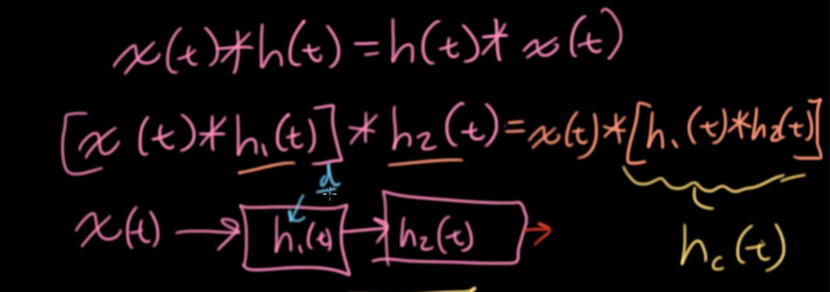 x(t)*h(t)=h(t)*x(t)
[x(t)*h₁(t)]*h₂(t)=x(t)*[h₁(t)*h₂(t)]
d
x(t) → h₁(t) → h₂(t) →
h꜀(t)